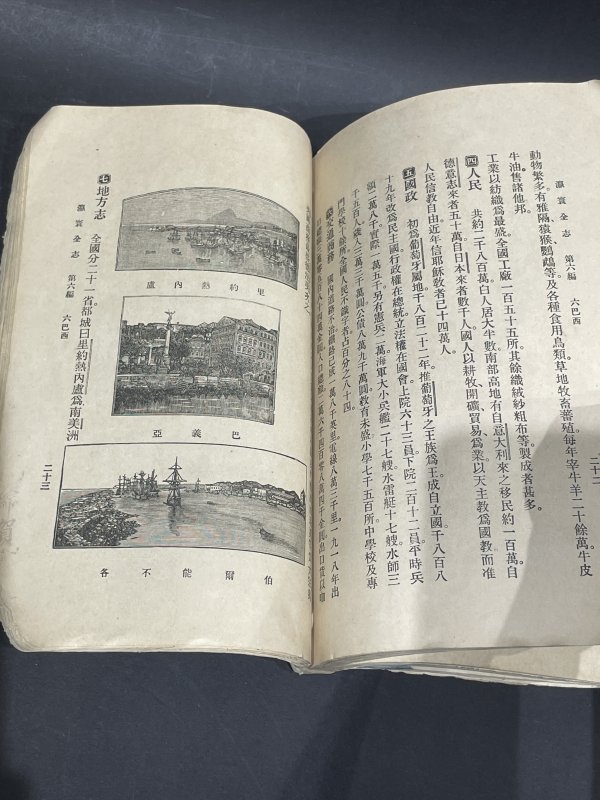 動物繁多有雅隔猿猴鸚鵡等及各種食用鳥類草地牧畜蕃殖每年宰牛羊二十餘萬牛皮
牛油售諸他邦。
四人民 共約二千八百萬白人居大半數南部高地有自意大利來之移民約一百萬自
德意志來者五十萬自日本來者數千人國人以耕牧開礦貿易爲業以天主教爲國教而准
工業以紡織爲最盛。全國工廠一百五十五所其餘織絨紗粗布等。製成者甚多。
人民信教自由近年信耶穌教者已十四萬人。
五國政 初爲葡萄牙屬地千八百二十二年推葡萄牙之王族爲王成自立國千八百八
十九年改爲民主國行政權在總統立法權在國會上院六十三員下院二百十二員平時兵
額二萬八千實際一萬五千另有憲兵二萬海軍大小兵艦二十七艘水雷艇十七艘。水師三
千五百人歲入三萬三千萬圓公債八萬九千萬圓教育未盛小學七千五百所中學校及專
門學校十餘所全國人民不識字者占百分之八十四。
國內道路不治鐵路已成一萬八千英里。電線八萬三千里。一九一八年出
灜寰全志 第六編 六巴西
二十二
里約熱內盧
巴義亞
伯爾能不各
灜寰全志 第六編 六巴西
七地方志 全國分二十一省都城曰里約熱內盧爲南美洲
二十三